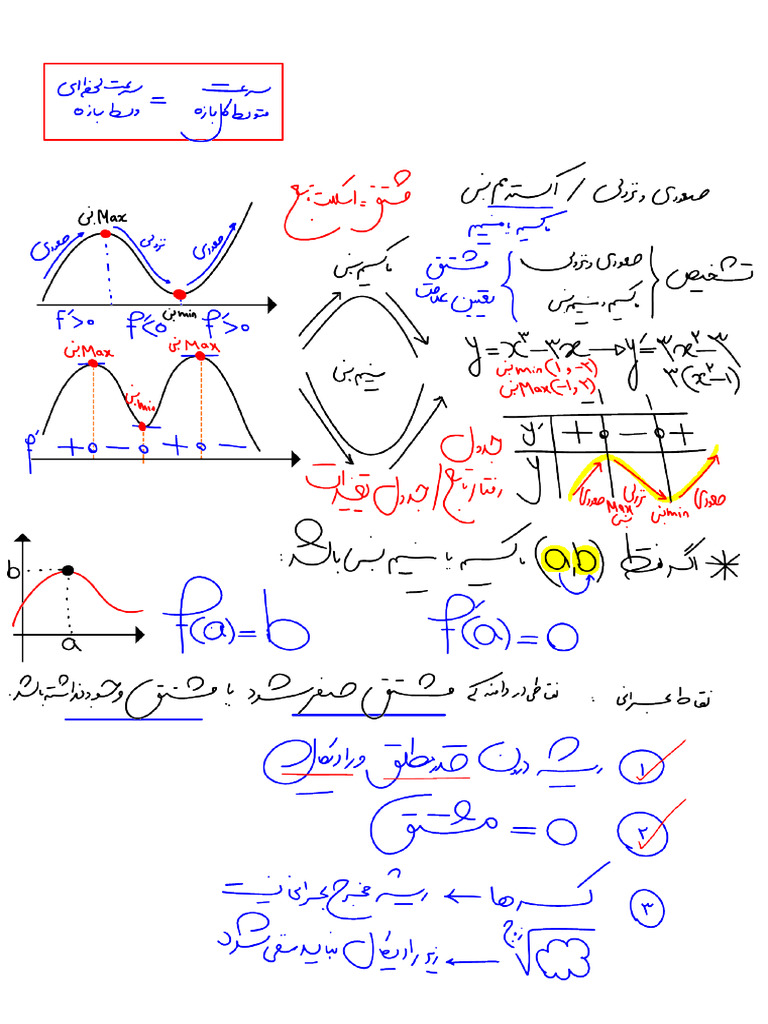 سرعت متوسط کل بازه = سرعت لحظه‌ای وسط بازه
صعودی و نزولی / اکسترمم نسبی
ماکسیمم مینیمم
مشتق = اسکلت تابع
تشخیص { صعودی و نزولی
ماکسیمم و مینیمم نسبی } مشتق تعیین علامت
ماکسیمم نسبی
مینیمم نسبی
نسبی Max
صعودی نزولی صعودی
نسبی min
f'>0 f'<0 f'>0
نسبی Max نسبی Max
نسبی min
f' + 0 - 0 + 0 -
y = x³ - ۳x → y' = ۳x² - ۳
۳(x² - 1)
نسبی min (۱ و -۲)
نسبی Max (-۱ و ۲)
-1 1
y' + 0 - 0 +
y صعودی نزولی صعودی
Max نسبی نسبی min
جدول
رفتار تابع / جدول تغییرات
* اگر نقطه (a,b) ماکسیمم یا مینیمم نسبی باشد:
b
a
f(a) = b f'(a) = 0
نقاط بحرانی : نقاطی در دامنه که مشتق صفر شود یا مشتق وجود نداشته باشد.
۱ ریشه درون قدرمطلق و رادیکال
۲ مشتق = 0
۳ کسرها ← ریشه مخرج بحرانی نیست
زوج √ ← زیر رادیکال نباید منفی شود